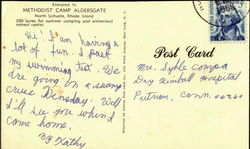 Entrance to
METHODIST CAMP ALDERSGATE
North Scituate, Rhode Island
200 acres for summer camping and winterized
retreat center.
Hi! I am having a
lot of fun. I past
my swimming test. We
are going on a
cruse Wensday. Well
I'll see you when I
come home.
By Kathy
Post Card
Mr.
Day Kimball Hospital
Putnam, Conn. 06260